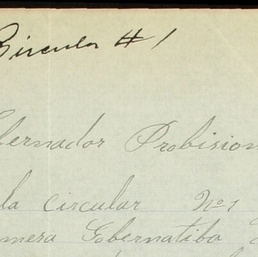 Circular #1
bernador Probision
la circular Nº1
mera Gobernatiba